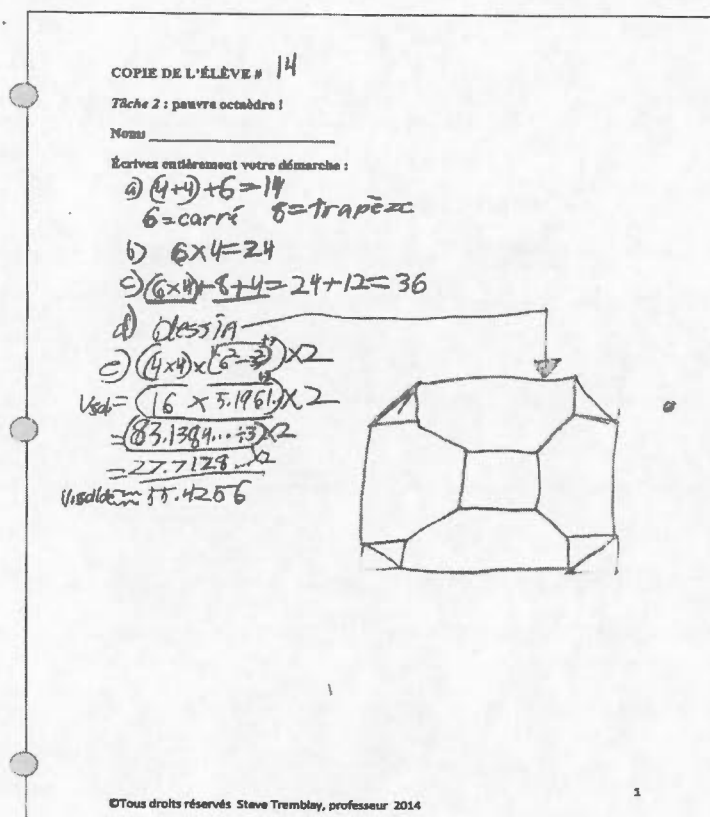 COPIE DE L'ÉLÈVE # 14
Tâche 2 : pauvre octaèdre !
Noms
Écrivez entièrement votre démarche :
a) (4+4)+6=14
6=carré 8=trapèze
b) 6×4=24
c) (6×4)+8+4=24+12=36
d) dessin
e) ((4×4)×(6²-3²)÷3)×2
Vsol= (16 × 5.1961..)÷3×2
=(83.1384...÷3)×2
=27.7128..×2
Vsolide≈55.4256
©Tous droits réservés Steve Tremblay, professeur 2014
1